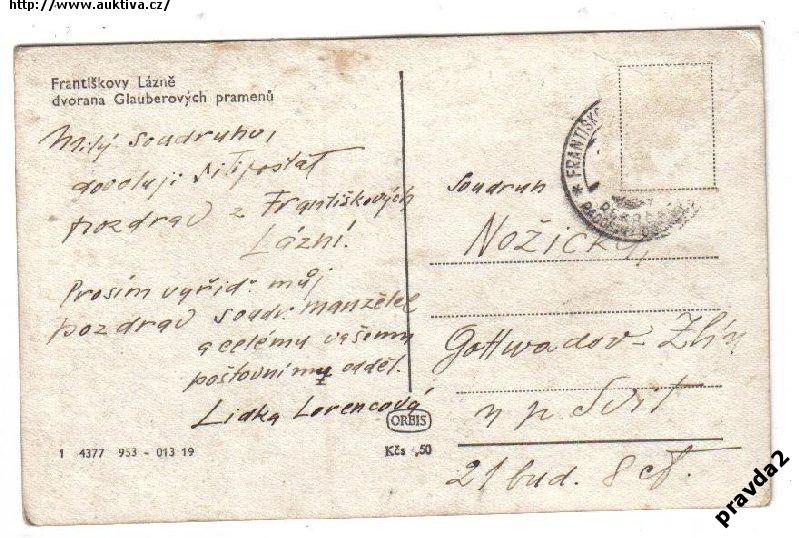 http://www.auktiva.cz/
Františkovy Lázně
dvorana Glauberových pramenů
Milý soudruhu,
dovoluji si poslat
pozdrav z Františkových
Lázní.
Prosím vyřiď můj
pozdrav soudr. manželce
a celému vašemu
poštovnímu odděl.
Lidka Lorencová
1 4377 953 - 013 19
ORBIS
Kčs ,50
* FRANTIŠKO
Soudruh
Nožička
Gottwadov - Zlín
n p Svit
21 bud. 8 et.
pravda2